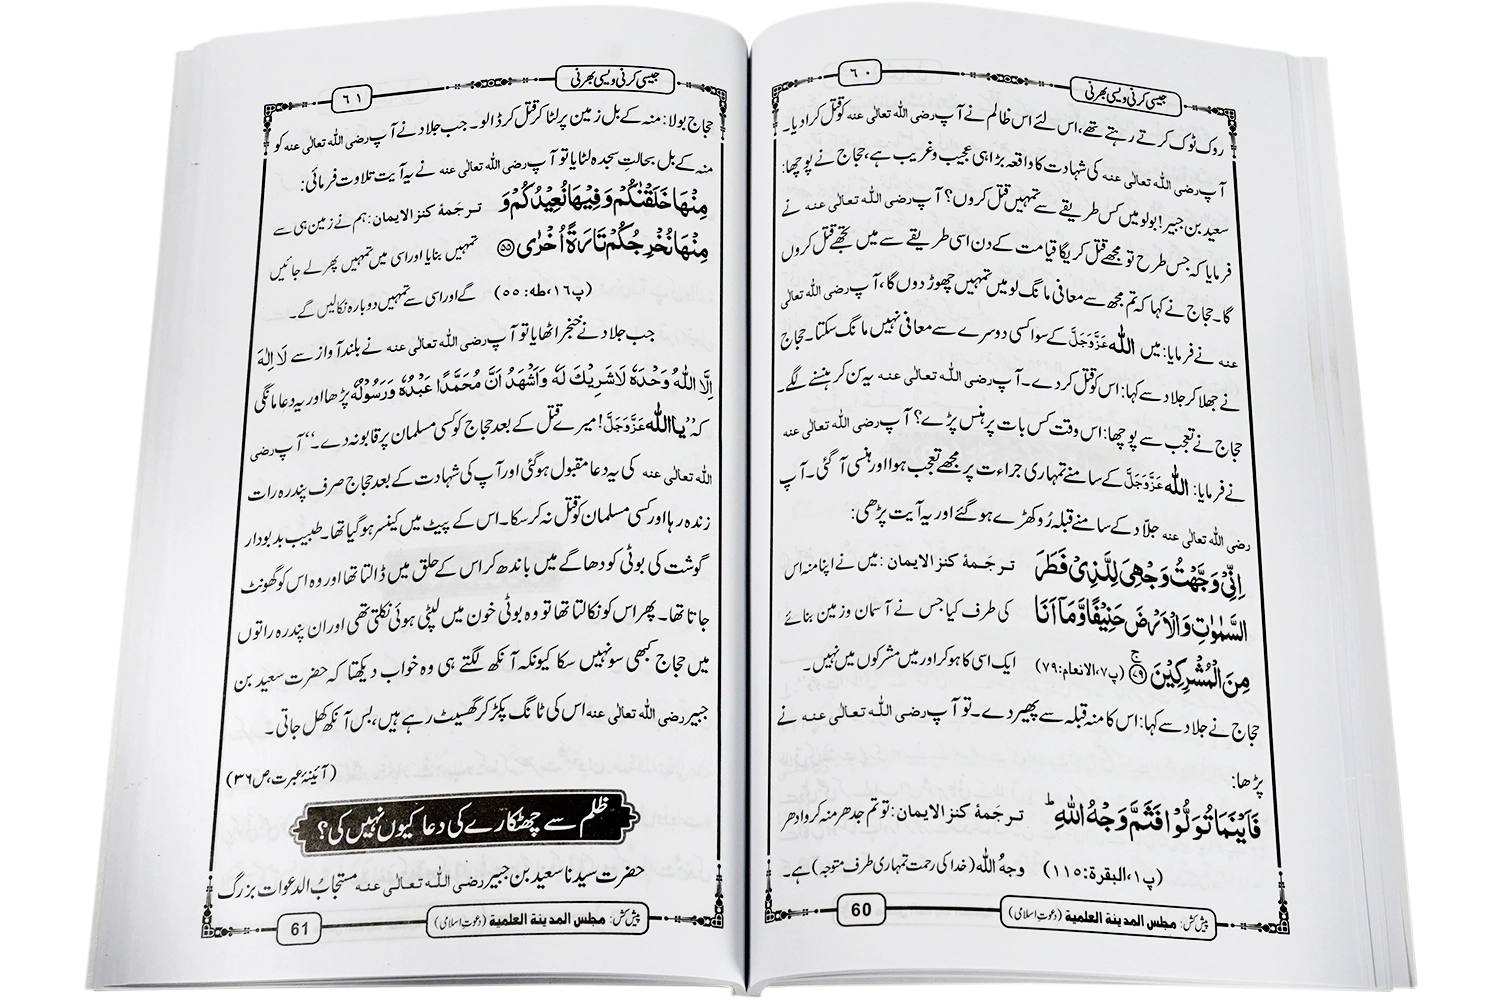 جیسی کرنی ویسی بھرنی
٦٠
روک ٹوک کرتے رہتے تھے، اس لئے اس ظالم نے آپ رضی اللہ تعالٰی عنہ کو قتل کرا دیا۔
آپ رضی اللہ تعالٰی عنہ کی شہادت کا واقعہ بڑا ہی عجیب و غریب ہے، حجاج نے پوچھا:
سعید بن جبیر! بولو میں کس طریقے سے تمہیں قتل کروں؟ آپ رضی اللہ تعالٰی عنہ نے
فرمایا کہ جس طرح تو مجھے قتل کریگا قیامت کے دن اسی طریقے سے میں تجھے قتل کروں
گا۔ حجاج نے کہا کہ تم مجھ سے معافی مانگ لو میں تمہیں چھوڑ دوں گا، آپ رضی اللہ تعالٰی
عنہ نے فرمایا: میں اللہ عَزَّوَجَلَّ کے سوا کسی دوسرے سے معافی نہیں مانگ سکتا۔ حجاج
نے جھلا کر جلاد سے کہا: اس کو قتل کر دے۔ آپ رضی اللہ تعالٰی عنہ یہ سن کر ہنسنے لگے۔
حجاج نے تعجب سے پوچھا: اس وقت کس بات پر ہنس پڑے؟ آپ رضی اللہ تعالٰی عنہ
نے فرمایا: اللہ عَزَّوَجَلَّ کے سامنے تمہاری جراءت پر مجھے تعجب ہوا اور ہنسی آ گئی۔ آپ
رضی اللہ تعالٰی عنہ جلاّد کے سامنے قبلہ رُو کھڑے ہو گئے اور یہ آیت پڑھی:
اِنِّیْ وَجَّهْتُ وَجْهِیَ لِلَّذِیْ فَطَرَ ترجمۂ کنز الایمان: میں نے اپنا منہ اس
السَّمٰوٰتِ وَالْاَرْضَ حَنِیْفًا وَّمَاۤ اَنَا کی طرف کیا جس نے آسمان و زمین بنائے
مِنَ الْمُشْرِكِیْنَ ﴿۷۹﴾ (پ۷، الانعام:۷۹) ایک اسی کا ہو کر اور میں مشرکوں میں نہیں۔
حجاج نے جلاد سے کہا: اس کا منہ قبلہ سے پھیر دے۔ تو آپ رضی اللہ تعالٰی عنہ نے
پڑھا:
فَاَیْنَمَا تُوَلُّوْا فَثَمَّ وَجْهُ اللّٰهِ ؕ ترجمۂ کنز الایمان: تو تم جدھر منہ کرو ادھر
(پ۱، البقرة:۱۱۵) وجہُ اللہ (خدا کی رحمت تمہاری طرف متوجہ) ہے۔
پیش کش: مجلس المدینة العلمیة (دعوتِ اسلامی)
60
جیسی کرنی ویسی بھرنی
٦١
حجاج بولا: منہ کے بل زمین پر لٹا کر قتل کر ڈالو۔ جب جلاد نے آپ رضی اللہ تعالٰی عنہ کو
منہ کے بل بحالتِ سجدہ لٹایا تو آپ رضی اللہ تعالٰی عنہ نے یہ آیت تلاوت فرمائی:
مِنْهَا خَلَقْنٰكُمْ وَفِیْهَا نُعِیْدُكُمْ وَ ترجمۂ کنز الایمان: ہم نے زمین ہی سے
مِنْهَا نُخْرِجُكُمْ تَارَةً اُخْرٰی ﴿۵۵﴾ تمہیں بنایا اور اسی میں تمہیں پھر لے جائیں
(پ۱۶، طه:۵۵) گے اور اسی سے تمہیں دوبارہ نکالیں گے۔
جب جلاد نے خنجر اٹھایا تو آپ رضی اللہ تعالٰی عنہ نے بلند آواز سے لَا اِلٰهَ
اِلَّا اللّٰهُ وَحْدَهٗ لَاشَرِیْكَ لَهٗ وَاَشْهَدُ اَنَّ مُحَمَّدًا عَبْدُهٗ وَرَسُوْلُهٗ پڑھا اور یہ دعا مانگی
کہ ’’یا اللہ عَزَّوَجَلَّ! میرے قتل کے بعد حجاج کو کسی مسلمان پر قابو نہ دے۔‘‘ آپ رضی
اللہ تعالٰی عنہ کی یہ دعا مقبول ہو گئی اور آپ کی شہادت کے بعد حجاج صرف پندرہ رات
زندہ رہا اور کسی مسلمان کو قتل نہ کر سکا۔ اس کے پیٹ میں کینسر ہو گیا تھا۔ طبیب بدبودار
گوشت کی بوٹی کو دھاگے میں باندھ کر اس کے حلق میں ڈالتا تھا اور وہ اس کو گھونٹ
جاتا تھا۔ پھر اس کو نکالتا تھا تو وہ بوٹی خون میں لپٹی ہوئی نکلتی تھی اور ان پندرہ راتوں
میں حجاج کبھی سو نہیں سکا کیونکہ آنکھ لگتے ہی وہ خواب دیکھتا کہ حضرت سعید بن
جبیر رضی اللہ تعالٰی عنہ اس کی ٹانگ پکڑ کر گھسیٹ رہے ہیں، بس آنکھ کھل جاتی۔
(آئینۂ عبرت، ص۳۶)
ظلم سے چھٹکارے کی دعا کیوں نہیں کی؟
حضرت سیدنا سعید بن جبیر رضی اللہ تعالٰی عنہ مستجابُ الدعوات بزرگ
پیش کش: مجلس المدینة العلمیة (دعوتِ اسلامی)
61